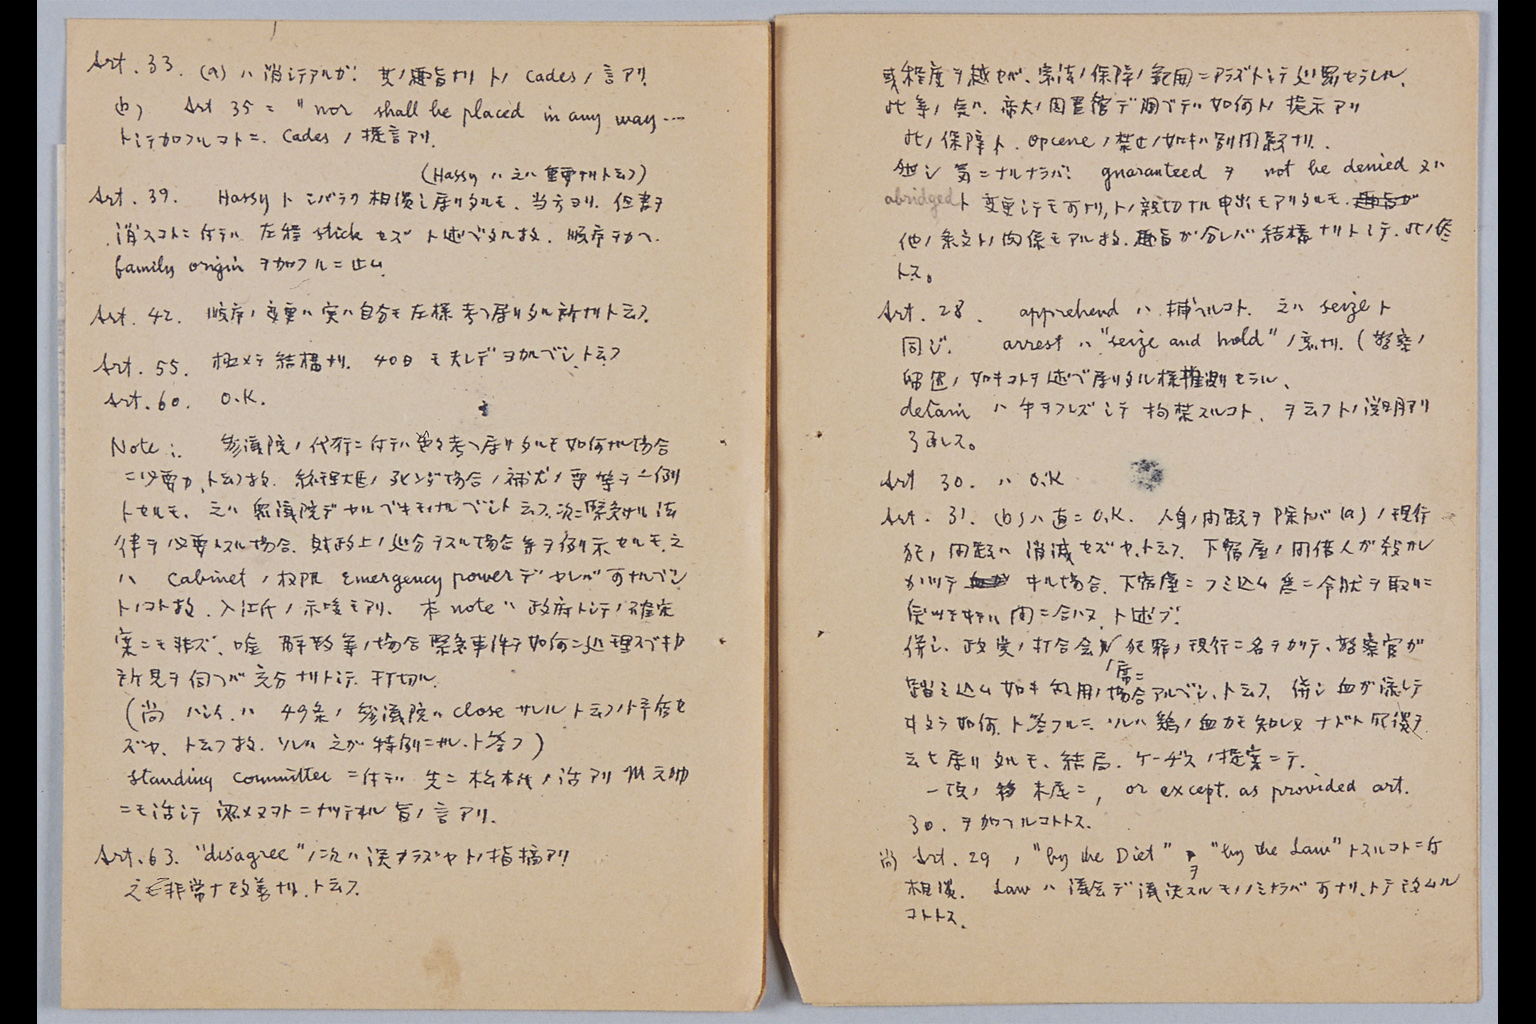 Art. 33. (a) ハ消シテアルガ、其ノ趣旨ナリトノ Cades ノ言アリ
(b) Art 35 = "nor shall be placed in any way ----
トシテ加フルコトニ、Cades ノ提言アリ.
(Hassy ハ之ハ重要ナリト云フ)
Art. 39. Hassy トシバラク相談シ居リタルモ、当方ヨリ、但書ヲ
消スコトニ付テハ左程 stick セズト述ベタル故、順序ヲカヘ
family origin ヲ加フルニ止ム
Art. 42. 順序ノ変更ハ実ハ自分モ左様考ヘ居リタル所ナリト云フ.
Art. 55. 極メテ結構ナリ. 40日モ夫レデヨカルベシ、ト云フ
Art. 60. O.K.
Note: 参議院ノ代行ニ付テハ色々考ヘ居リタルモ如何ナル場合
ニ必要カ、ト云フ故、総理大臣ノ死ンダ場合ノ補充ノ要等ヲ一例
トセルモ、之ハ衆議院デヤルベキモノナルベシト云フ、次ニ緊急ナル法
律ヲ必要トスル場合、財政上ノ処分ヲスル場合等ヲ例示セルモ、之
ハ Cabinet ノ権限 emergency power デヤレバ可ナルベシ
トノコト故、入江氏ノ示唆モアリ、本 note ハ政府トシテノ確定
案ニモ非ズ、唯解散等ノ場合緊急事件ヲ如何ニ処理スベキカ
所見ヲ伺ヘバ充分ナリトシテ、打切ル.
(尚ハシイハ 49条ノ参議院ハ close サルルト云フハ存在セ
ズヤ、ト云フ故、ソレハ之ガ特例ニナル、ト答フ)
standing committee ニ付テハ先ニ松本氏ノ話アリ
ニモ話シテ認メヌコトニナツテ居ル旨ノ言アリ.
Art. 63. "disagree" ノ次ハ誤ナラズヤトノ指摘アリ
之モ非常ナ改善ナリ、ト云フ.
或程度ヲ越セバ、憲法ノ保障ノ範囲ニアラズトシテ処罰セラレル、
此等ノ点ハ、帝大ノ図書館デ調ベテハ如何トノ提示アリ
此ノ保障ト、opcene ノ禁止ノ如キハ別問題ナリ.
然シ気ニナルナラバ guaranteed ヲ not be denied 又ハ
abridged ト変更シテモ可ナリ、トノ親切ナル申出モアリタルモ、趣旨が
他ノ条文トノ関係モアル故、趣旨が分レバ結構ナリトシテ、此ノ儘
トス。
Art. 28. apprehend ハ捕ヘルコト、之ハ seize ト
同ジ. arrest ハ "seize and hold" ノ意ナリ. (警察ノ
留置ノ如キコトヲ述ベ居リタル様推測セラル、
detain ハ手ヲフレズシテ拘禁スルコト、ヲ云フトノ説明アリ
了承ス。
Art 30. ハ O.K
Art. 31. (b) ハ直ニ O.K. 人身ノ問題ヲ除ケバ (a) ノ現行
犯ノ問題ハ消滅セズヤ、ト云フ. 下宿屋ノ同居人が殺カレ
カカツテ 居ル場合、下宿屋ニフミ込ム為ニ令状ヲ取リニ
間ニ合ハヌ、ト述ブ.
併シ、政党ノ打合会ノ席ニ犯罪ノ現行ニ名ヲカリテ、警察官ガ
踏ミ込ム如キ乱用ノ場合アルベシ、ト云フ、併シ血が流レテ
キタラ如何、ト答フルニ、ソレハ鶏ノ血カモ知レヌナドト
云ヒ居リタルモ、結局、ケーヂスノ提案ニテ、
一項ノ末尾ニ, or except. as provided art.
30. ヲ加フルコトトス.
尚 Art. 29 ノ "by the Diet" ヲ "by the Law" トスルコトニ付
相談. Law ハ議会デ議決スルモノノミナラバ可ナリ、トテ改ムル
コトトス.